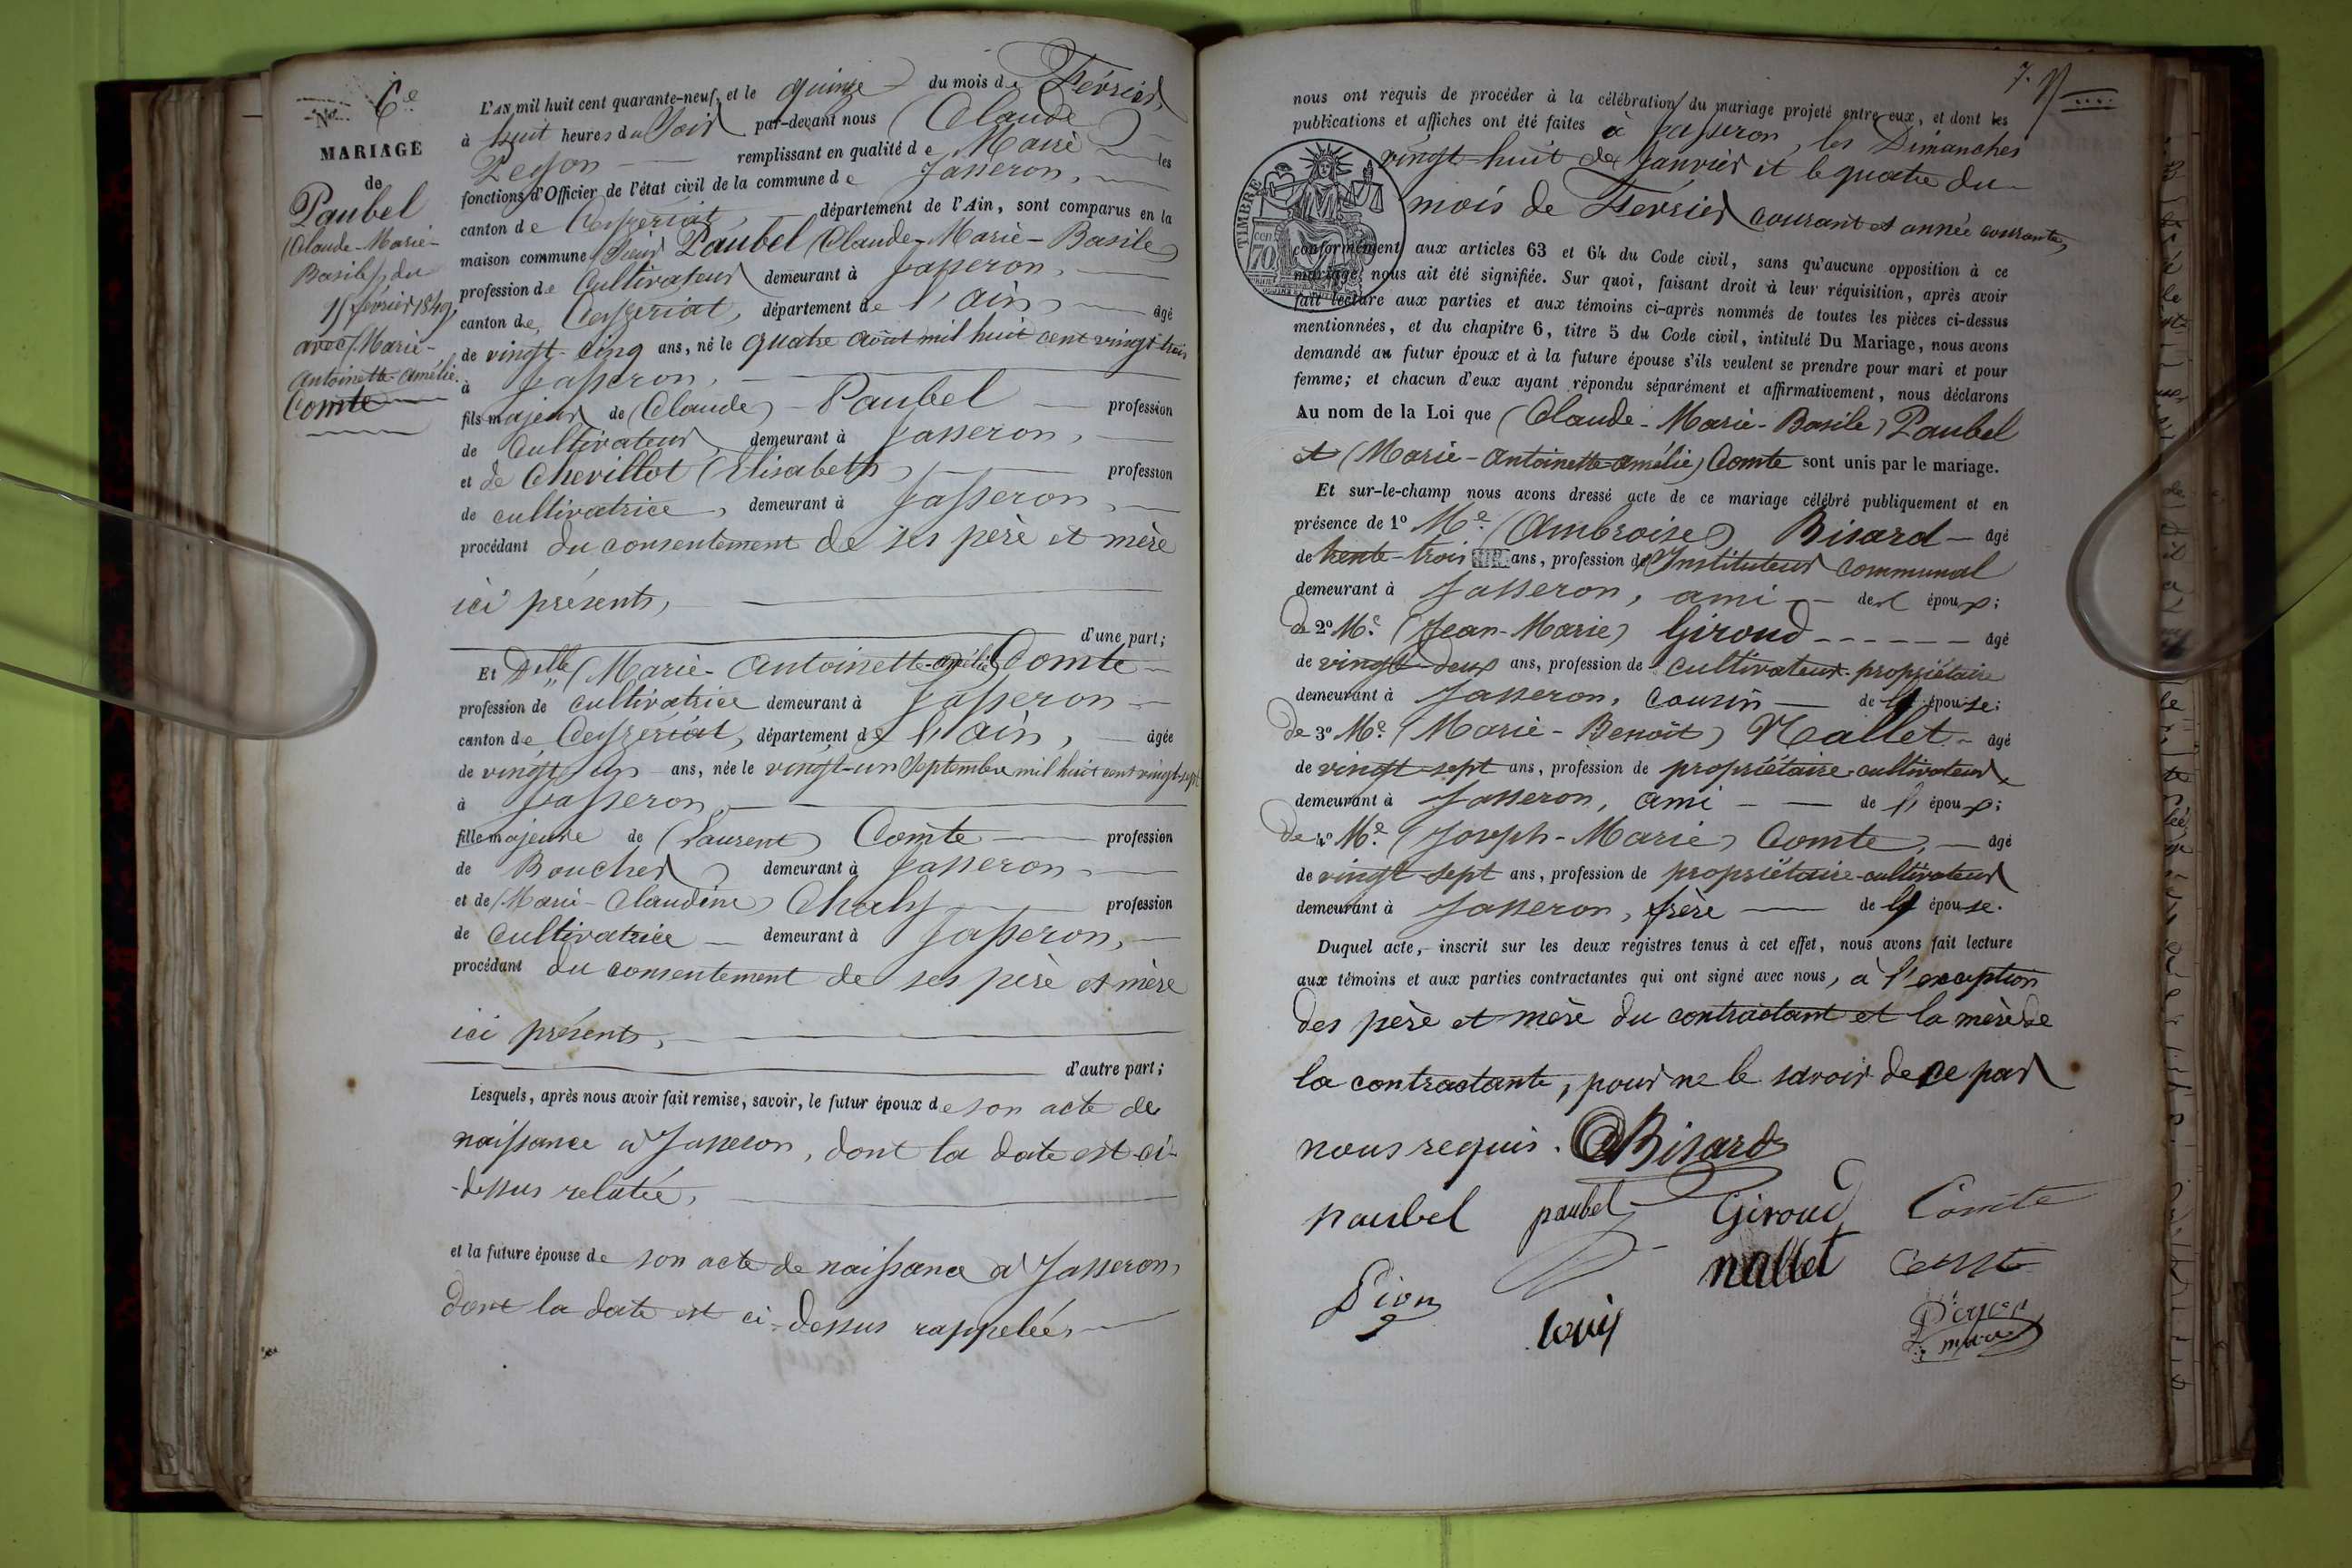 No 6e
MARIAGE
de
Paubel
(Claude-Marie-
Basile), du
15 février 1849,
avec (Marie-
Antoinette-Amélie)
Comte
L'AN mil huit cent quarante-neuf, et le quinze du mois de Février,
à huit heures du Soir par-devant nous (Claude)
remplissant en qualité de Maire les
fonctions d'Officier de l'état civil de la commune de Jasseron,
canton de Ceyzériat, département de l'Ain, sont comparus en la
maison commune Sieur Paubel (Claude-Marie-Basile)
profession de Cultivateur demeurant à Jasseron,
canton de Ceyzériat, département de l'Ain, âgé
de vingt-cinq ans, né le quatre août mil huit cent vingt-trois
à Jasseron,
fils majeur de (Claude) Paubel profession
de Cultivateur demeurant à Jasseron,
et de Chevillot (Elisabeth) profession
de cultivatrice, demeurant à Jasseron,
procédant du consentement de ses père et mère
ici présents,
d'une part;
Et Dlle (Marie-Antoinette-Amélie) Comte
profession de cultivatrice demeurant à Jasseron
canton de Ceyzériat, département de l'Ain, âgée
de vingt un ans, née le vingt-un Septembre mil huit cent vingt-sept
à Jasseron,
fille majeure de (Laurent) Comte profession
de Boucher demeurant à Jasseron
et de (Marie-Claudine) Chaly profession
de cultivatrice demeurant à Jasseron,
procédant du consentement de ses père et mère
ici présents,
d'autre part;
Lesquels, après nous avoir fait remise, savoir, le futur époux de son acte de
naissance à Jasseron, dont la date est ci-
-dessus relatée,
et la future épouse de son acte de naissance à Jasseron,
dont la date est ci-dessus rappelée,
7.
nous ont requis de procéder à la célébration du mariage projeté entre eux, et dont les
publications et affiches ont été faites à Jasseron, les Dimanches
vingt-huit de Janvier et le quatre du
mois de Février courant et année courante,
TIMBRE
70
conformément aux articles 63 et 64 du Code civil, sans qu'aucune opposition à ce
mariage nous ait été signifiée. Sur quoi, faisant droit à leur réquisition, après avoir
fait lecture aux parties et aux témoins ci-après nommés de toutes les pièces ci-dessus
mentionnées, et du chapitre 6, titre 5 du Code civil, intitulé Du Mariage, nous avons
demandé au futur époux et à la future épouse s'ils veulent se prendre pour mari et pour
femme; et chacun d'eux ayant répondu séparément et affirmativement, nous déclarons
Au nom de la Loi que (Claude-Marie-Basile) Paubel
et (Marie-Antoinette-Amélie) Comte sont unis par le mariage.
Et sur-le-champ nous avons dressé acte de ce mariage célébré publiquement et en
présence de 1º Me (Ambroise) Bisard âgé
de trente-trois ans, profession d'Instituteur communal
demeurant à Jasseron, ami de l'époux;
de 2º Me (Jean-Marie) Giroud âgé
de vingt-deux ans, profession de cultivateur-propriétaire
demeurant à Jasseron, cousin de l'épouse;
de 3º Me (Marie-Benoît) Nallet âgé
de vingt-sept ans, profession de propriétaire-cultivateur
demeurant à Jasseron, ami de l'époux;
de 4º Me (Joseph-Marie) Comte, âgé
de vingt-sept ans, profession de propriétaire-cultivateur
demeurant à Jasseron, frère de l'épouse.
Duquel acte, inscrit sur les deux registres tenus à cet effet, nous avons fait lecture
aux témoins et aux parties contractantes qui ont signé avec nous, à l'exception
des père et mère du contractant et la mère de
la contractante, pour ne le savoir de ce par
nous requis. Bisard
paubel paubel Giroud Comte
nallet Comte
Pion
louis
maire